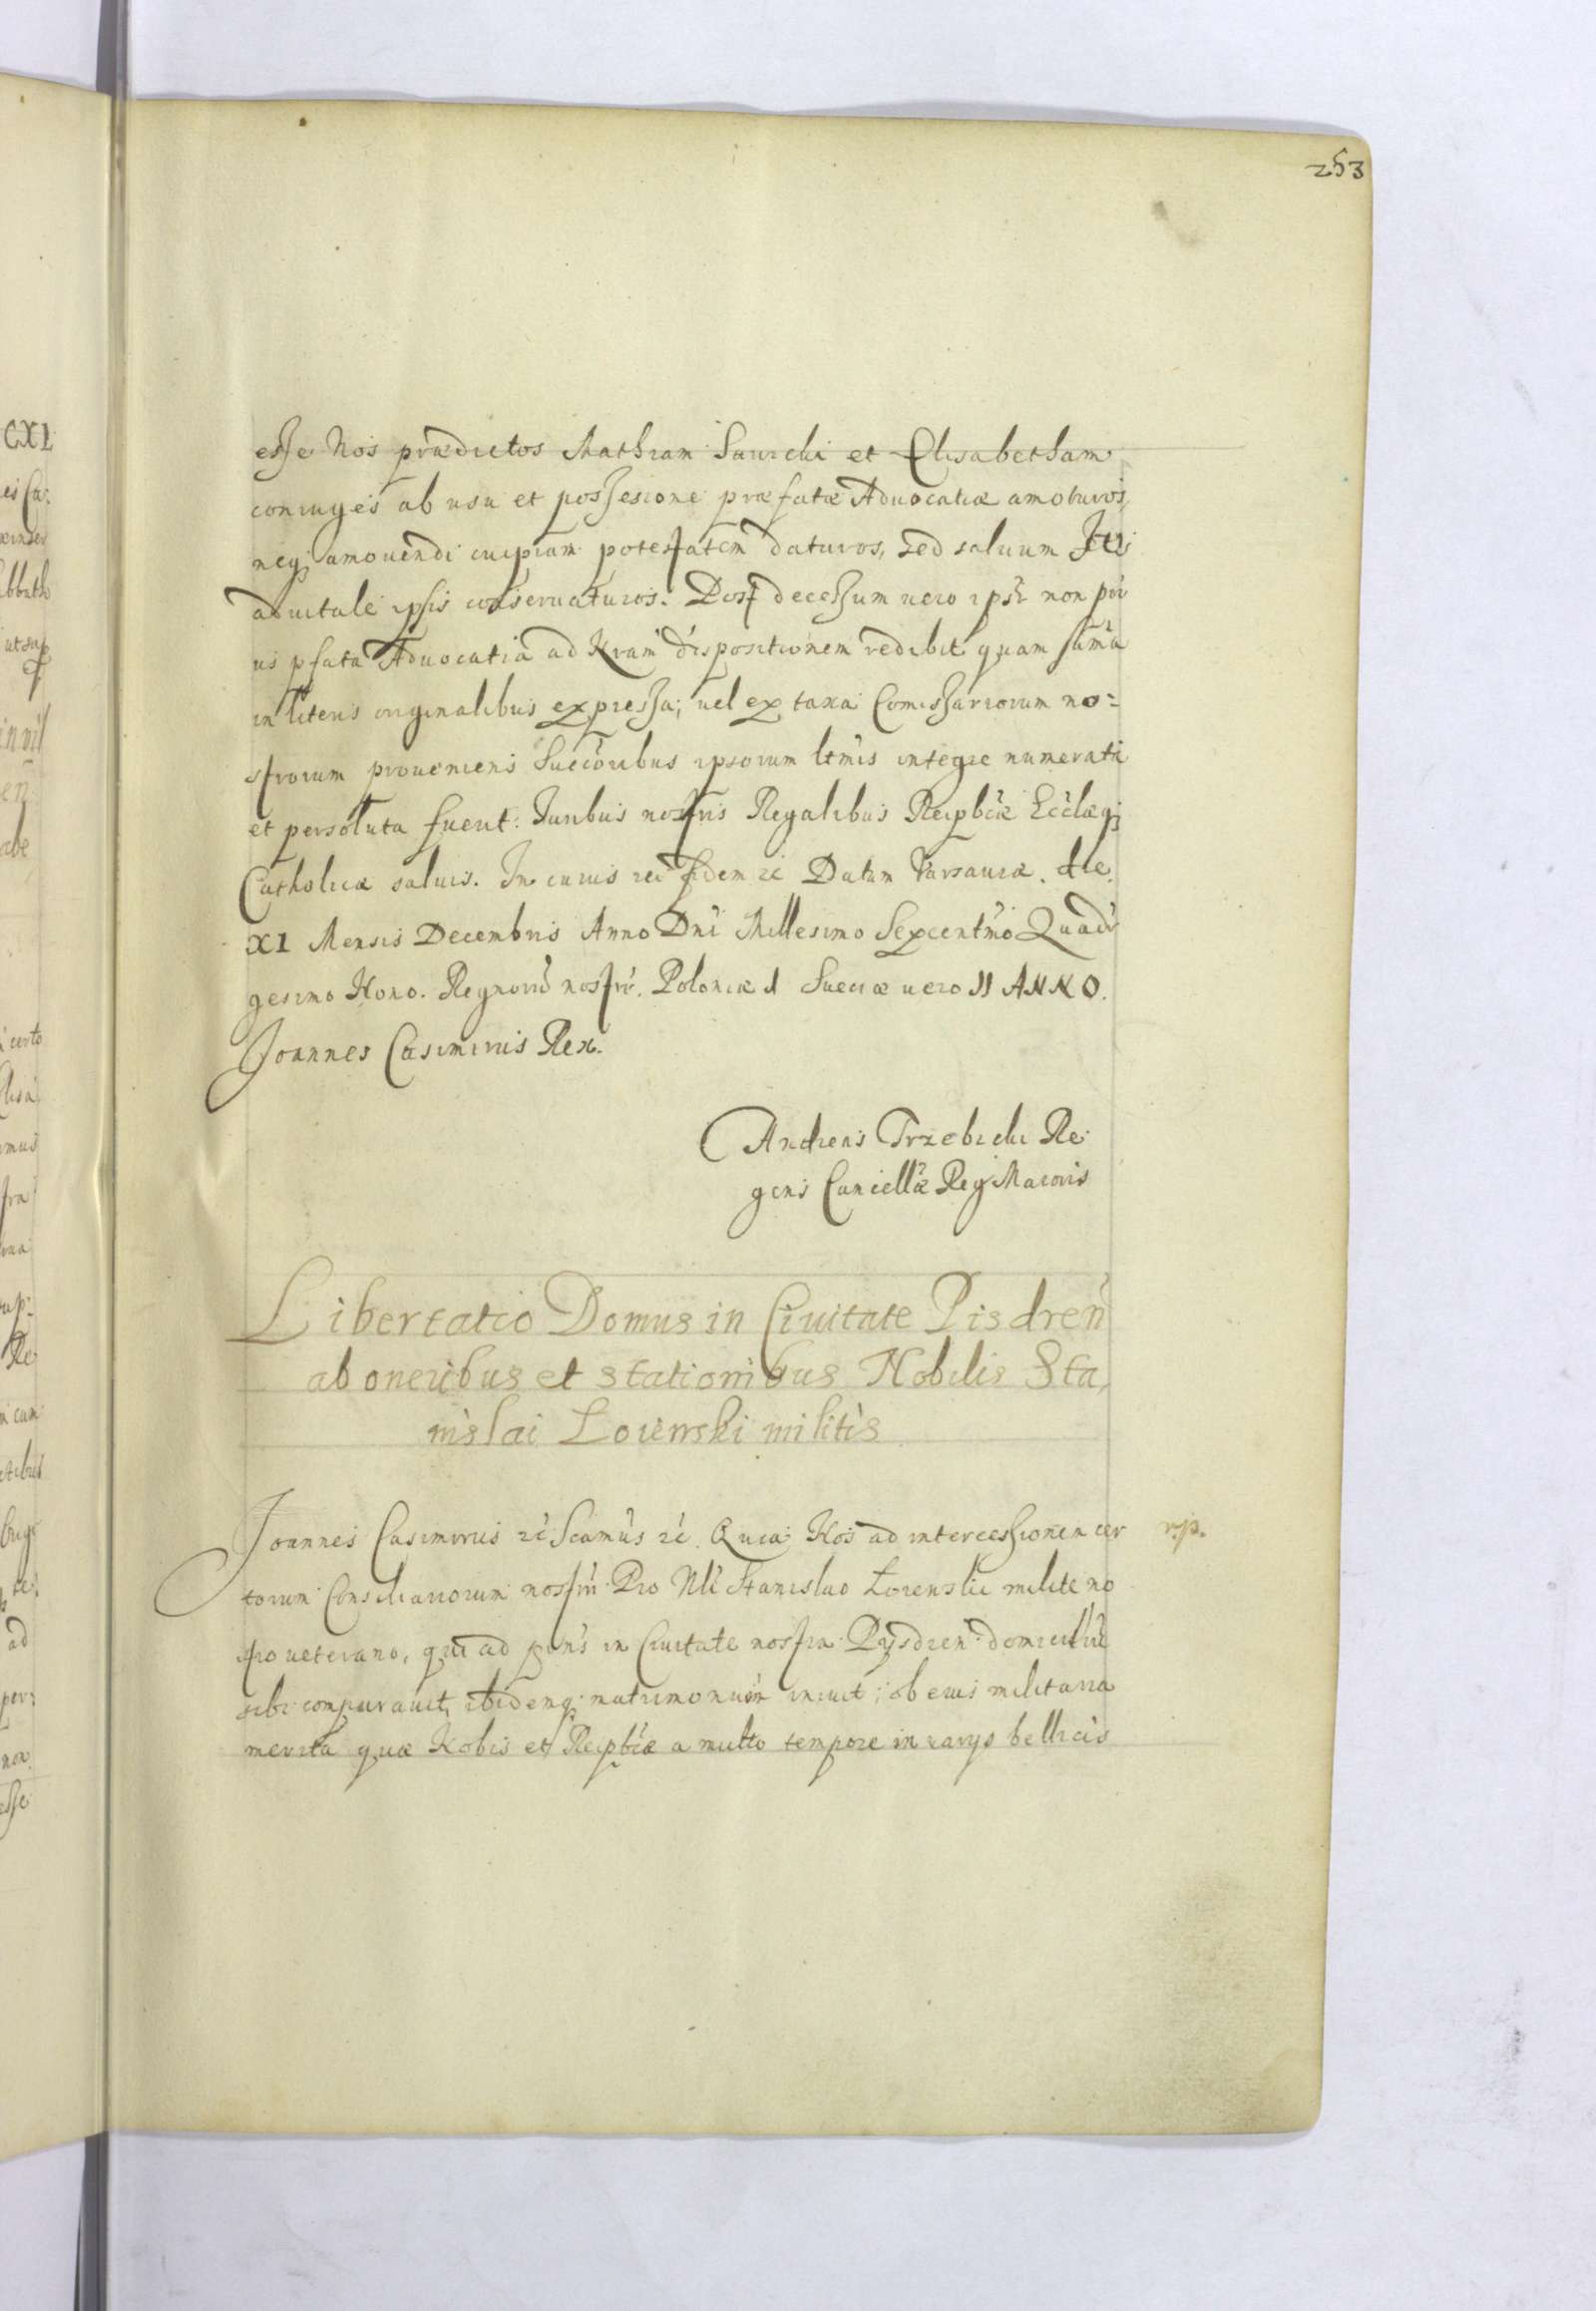 253
esse Nos prædictos Mathiam Sawicki et Elisabetham
coniuges ab usu et possesione præfatæ Aduocatiæ amoturos,
neq; amouendi cuipiam potestatem daturos, sed saluum Ius
aduitale ipsis conseruaturos. Post decessum uero ipsor non pri
us pfata Aduocatia ad Nram dispositionem redibit quam suma
in literis originalibus expressa; uel ex taxa Comissariorum no=
strorum proueniens Succoribus ipsorum ltmis integre numerata
et persoluta fuerit: Iuribus nostris Regalibus Reipbcæ Ecclæq;
Catholicæ saluis. In cuius rei fidem &c Datum Varsauiæ. die.
XI Mensis Decembris Anno Dni Millesimo Sexcentmo Quadr
gesimo Nono. Regnorū nostrr. Poloniæ 1 Sueciæ uero II ANNO.
Joannes Casimirus Rex.
Andreas Trzebicki Re
gens Cancellæ Reg Maioris
Libertatio Domus in Ciuitate Pisdren
ab oneribus et stationibus Nobilis Sta,
nislai Lorenski militis
Joannes Casimirus &c Scamus &c. Quia Nos ad intercessionem cer
torum Consiliariorum nostrū Pro Nli Stanislao Lorenski milite no
stro ueterano, qui ad pns in Ciuitate nostra Pysdren domicilliū
sibi comparauit, ibidemq; matrimonium iniuit; ob eius militaria
merita quæ Nobis et Reipbcæ a multo tempore in uarys bellicis